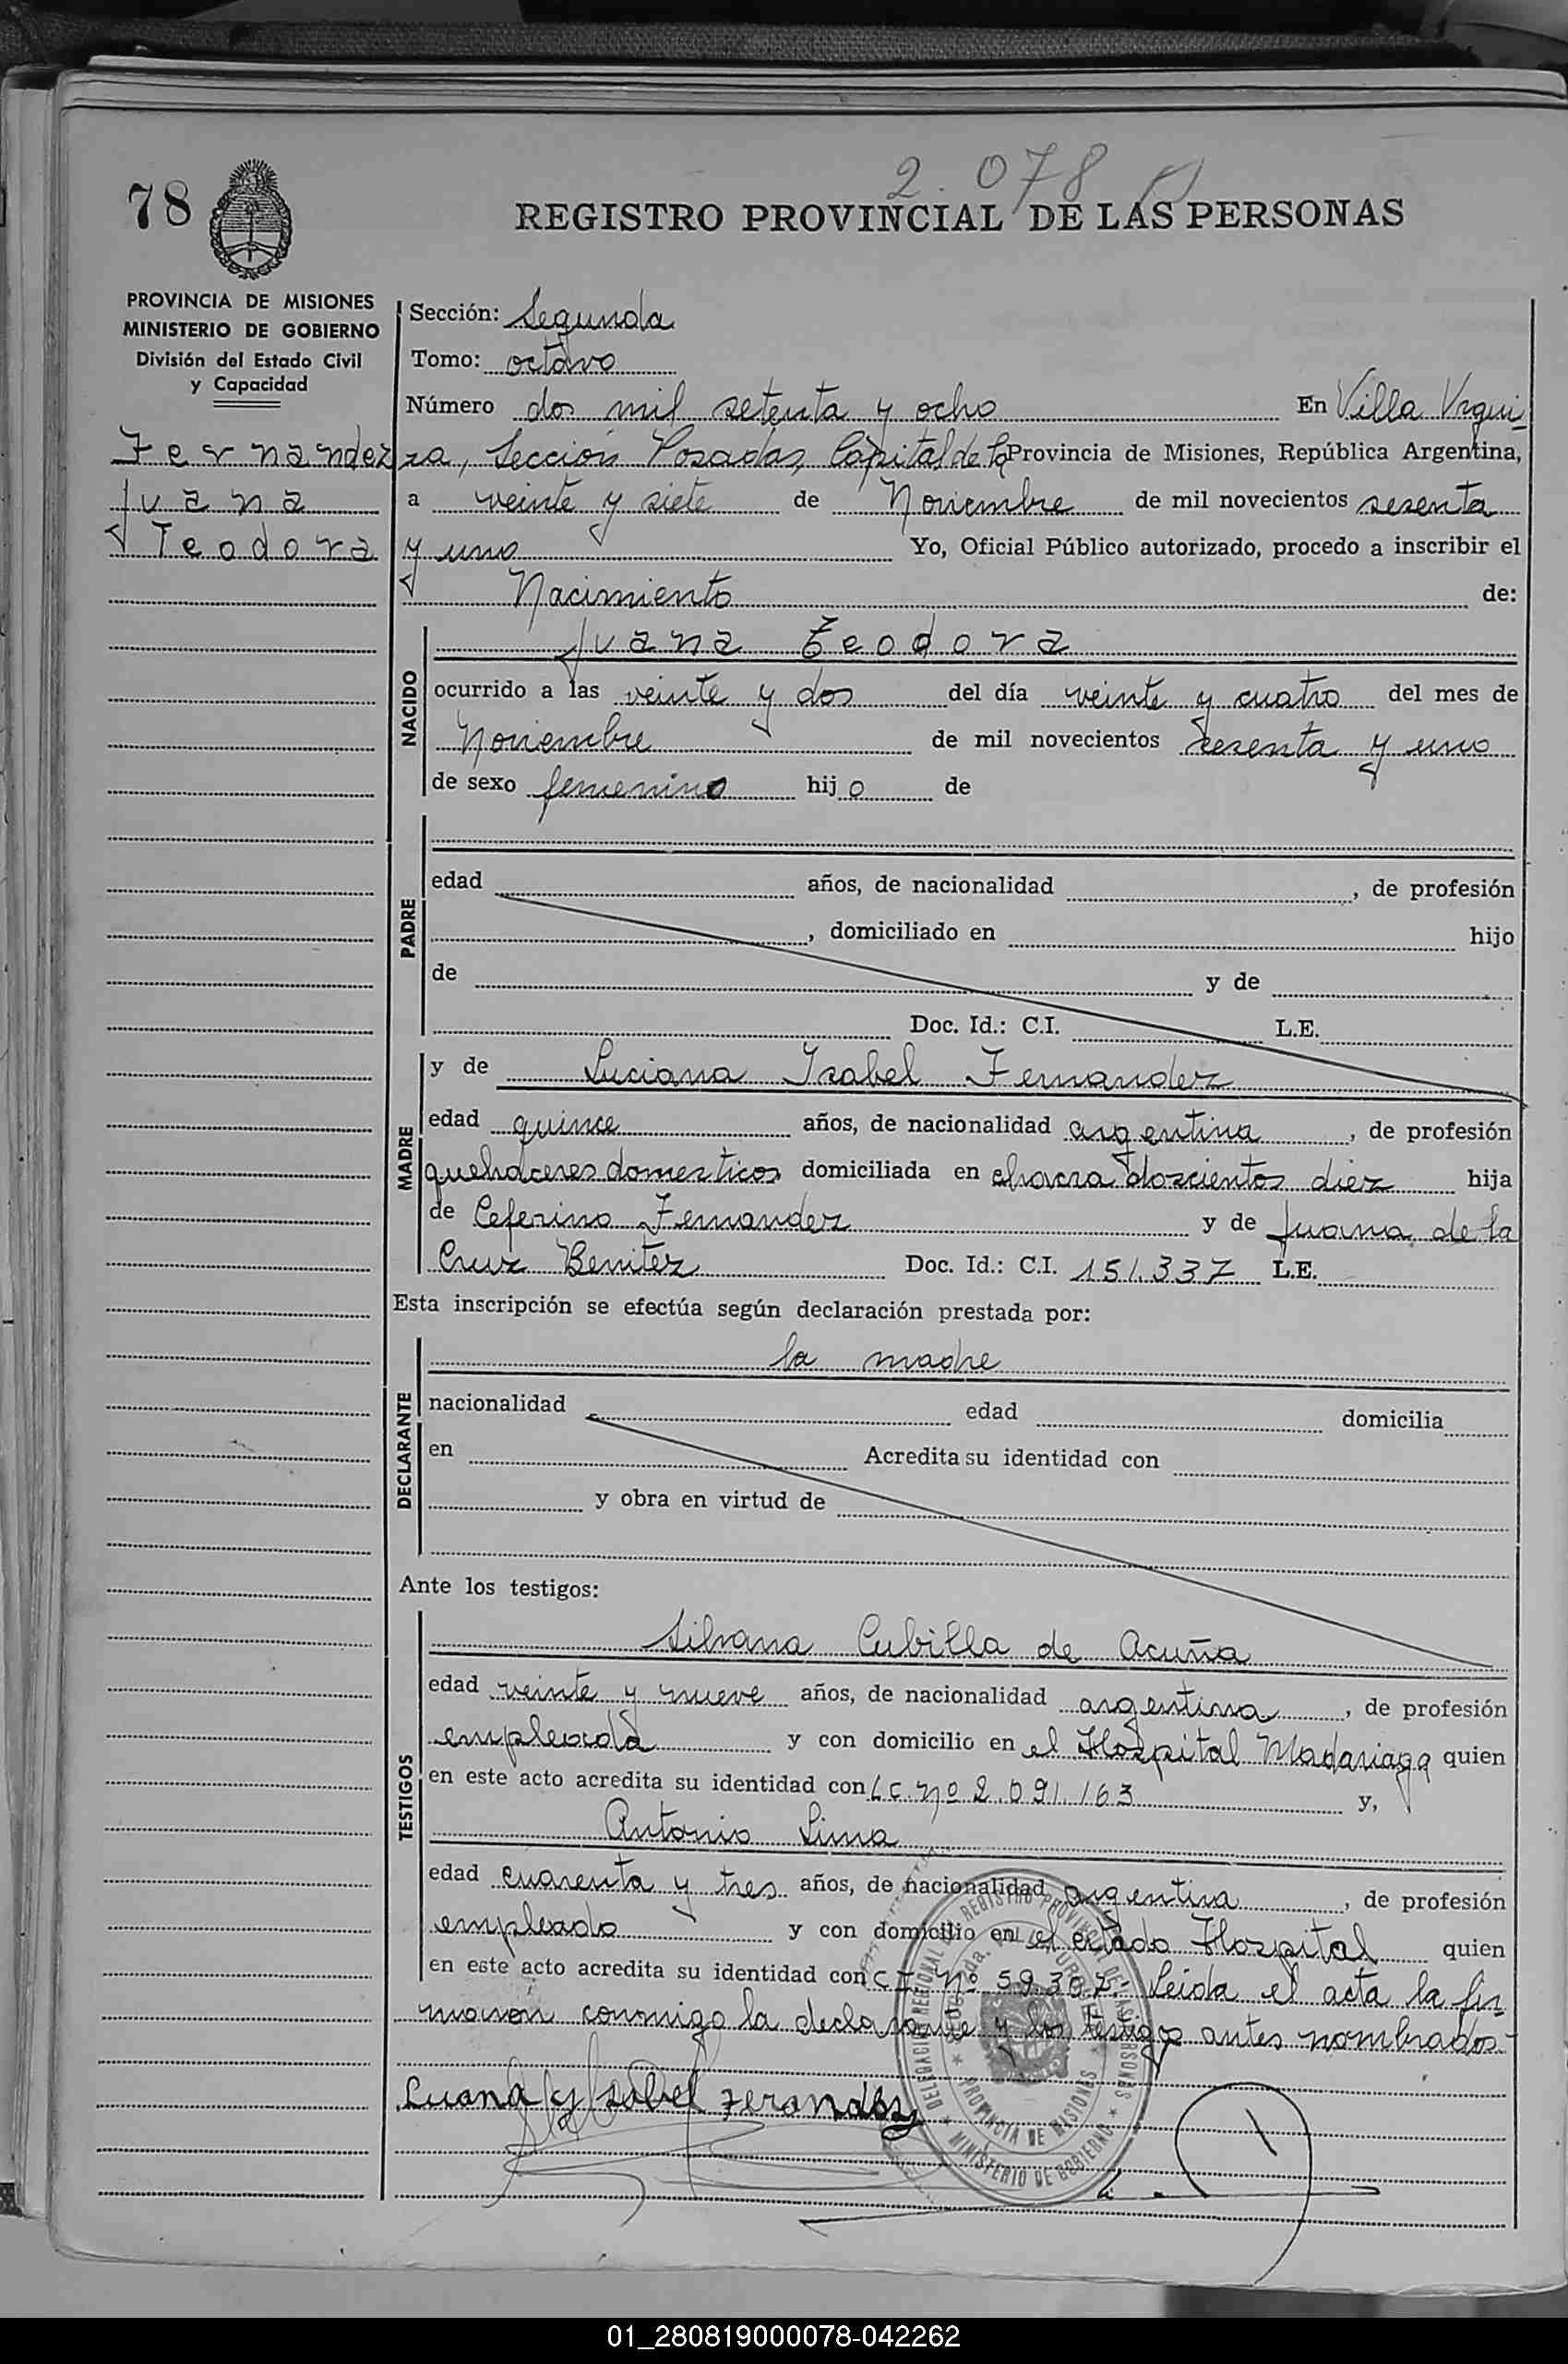 2.078
78
REGISTRO PROVINCIAL DE LAS PERSONAS
PROVINCIA DE MISIONES
MINISTERIO DE GOBIERNO
División del Estado Civil
y Capacidad
Fernandez
Juana
Teodora
Sección: Segunda
Tomo: octavo
Número dos mil setenta y ocho En Villa Urqui-
za, Sección Posadas, Capital de la Provincia de Misiones, República Argentina,
a veinte y siete de Noviembre de mil novecientos sesenta
y uno Yo, Oficial Público autorizado, procedo a inscribir el
Nacimiento de:
NACIDO
Juana Teodora
ocurrido a las veinte y dos del día veinte y cuatro del mes de
Noviembre de mil novecientos sesenta y uno
de sexo femenino hijo de
PADRE
edad años, de nacionalidad , de profesión
, domiciliado en hijo
de y de
Doc. Id.: C.I. L.E.
MADRE
y de Luciana Isabel Fernandez
edad quince años, de nacionalidad argentina, de profesión
quehaceres domesticos domiciliada en chacra doscientos diez hija
de Ceferino Fernandez y de Juana de la
Cruz Benitez Doc. Id.: C.I. 151.337 L.E.
Esta inscripción se efectúa según declaración prestada por:
DECLARANTE
la madre
nacionalidad edad domicilia
en Acredita su identidad con
y obra en virtud de
Ante los testigos:
TESTIGOS
Silvana Cubilla de Acuña
edad veinte y nueve años, de nacionalidad argentina, de profesión
empleada y con domicilio en el Hospital Madariaga quien
en este acto acredita su identidad con L.C. Nº 2.091.163 y,
Antonio Lima
edad cuarenta y tres años, de nacionalidad argentina, de profesión
empleado y con domicilio en el citado Hospital quien
en este acto acredita su identidad con C.I. Nº 59.307.- Leida el acta la fir
maron conmigo la declarante y los testigos antes nombrados.-
Luana Ysabel Ferandez
DELEGACION REGIONAL DEL REGISTRO PROVINCIAL DE LAS PERSONAS
MINISTERIO DE GOBIERNO
PROVINCIA DE MISIONES
01_280819000078-042262